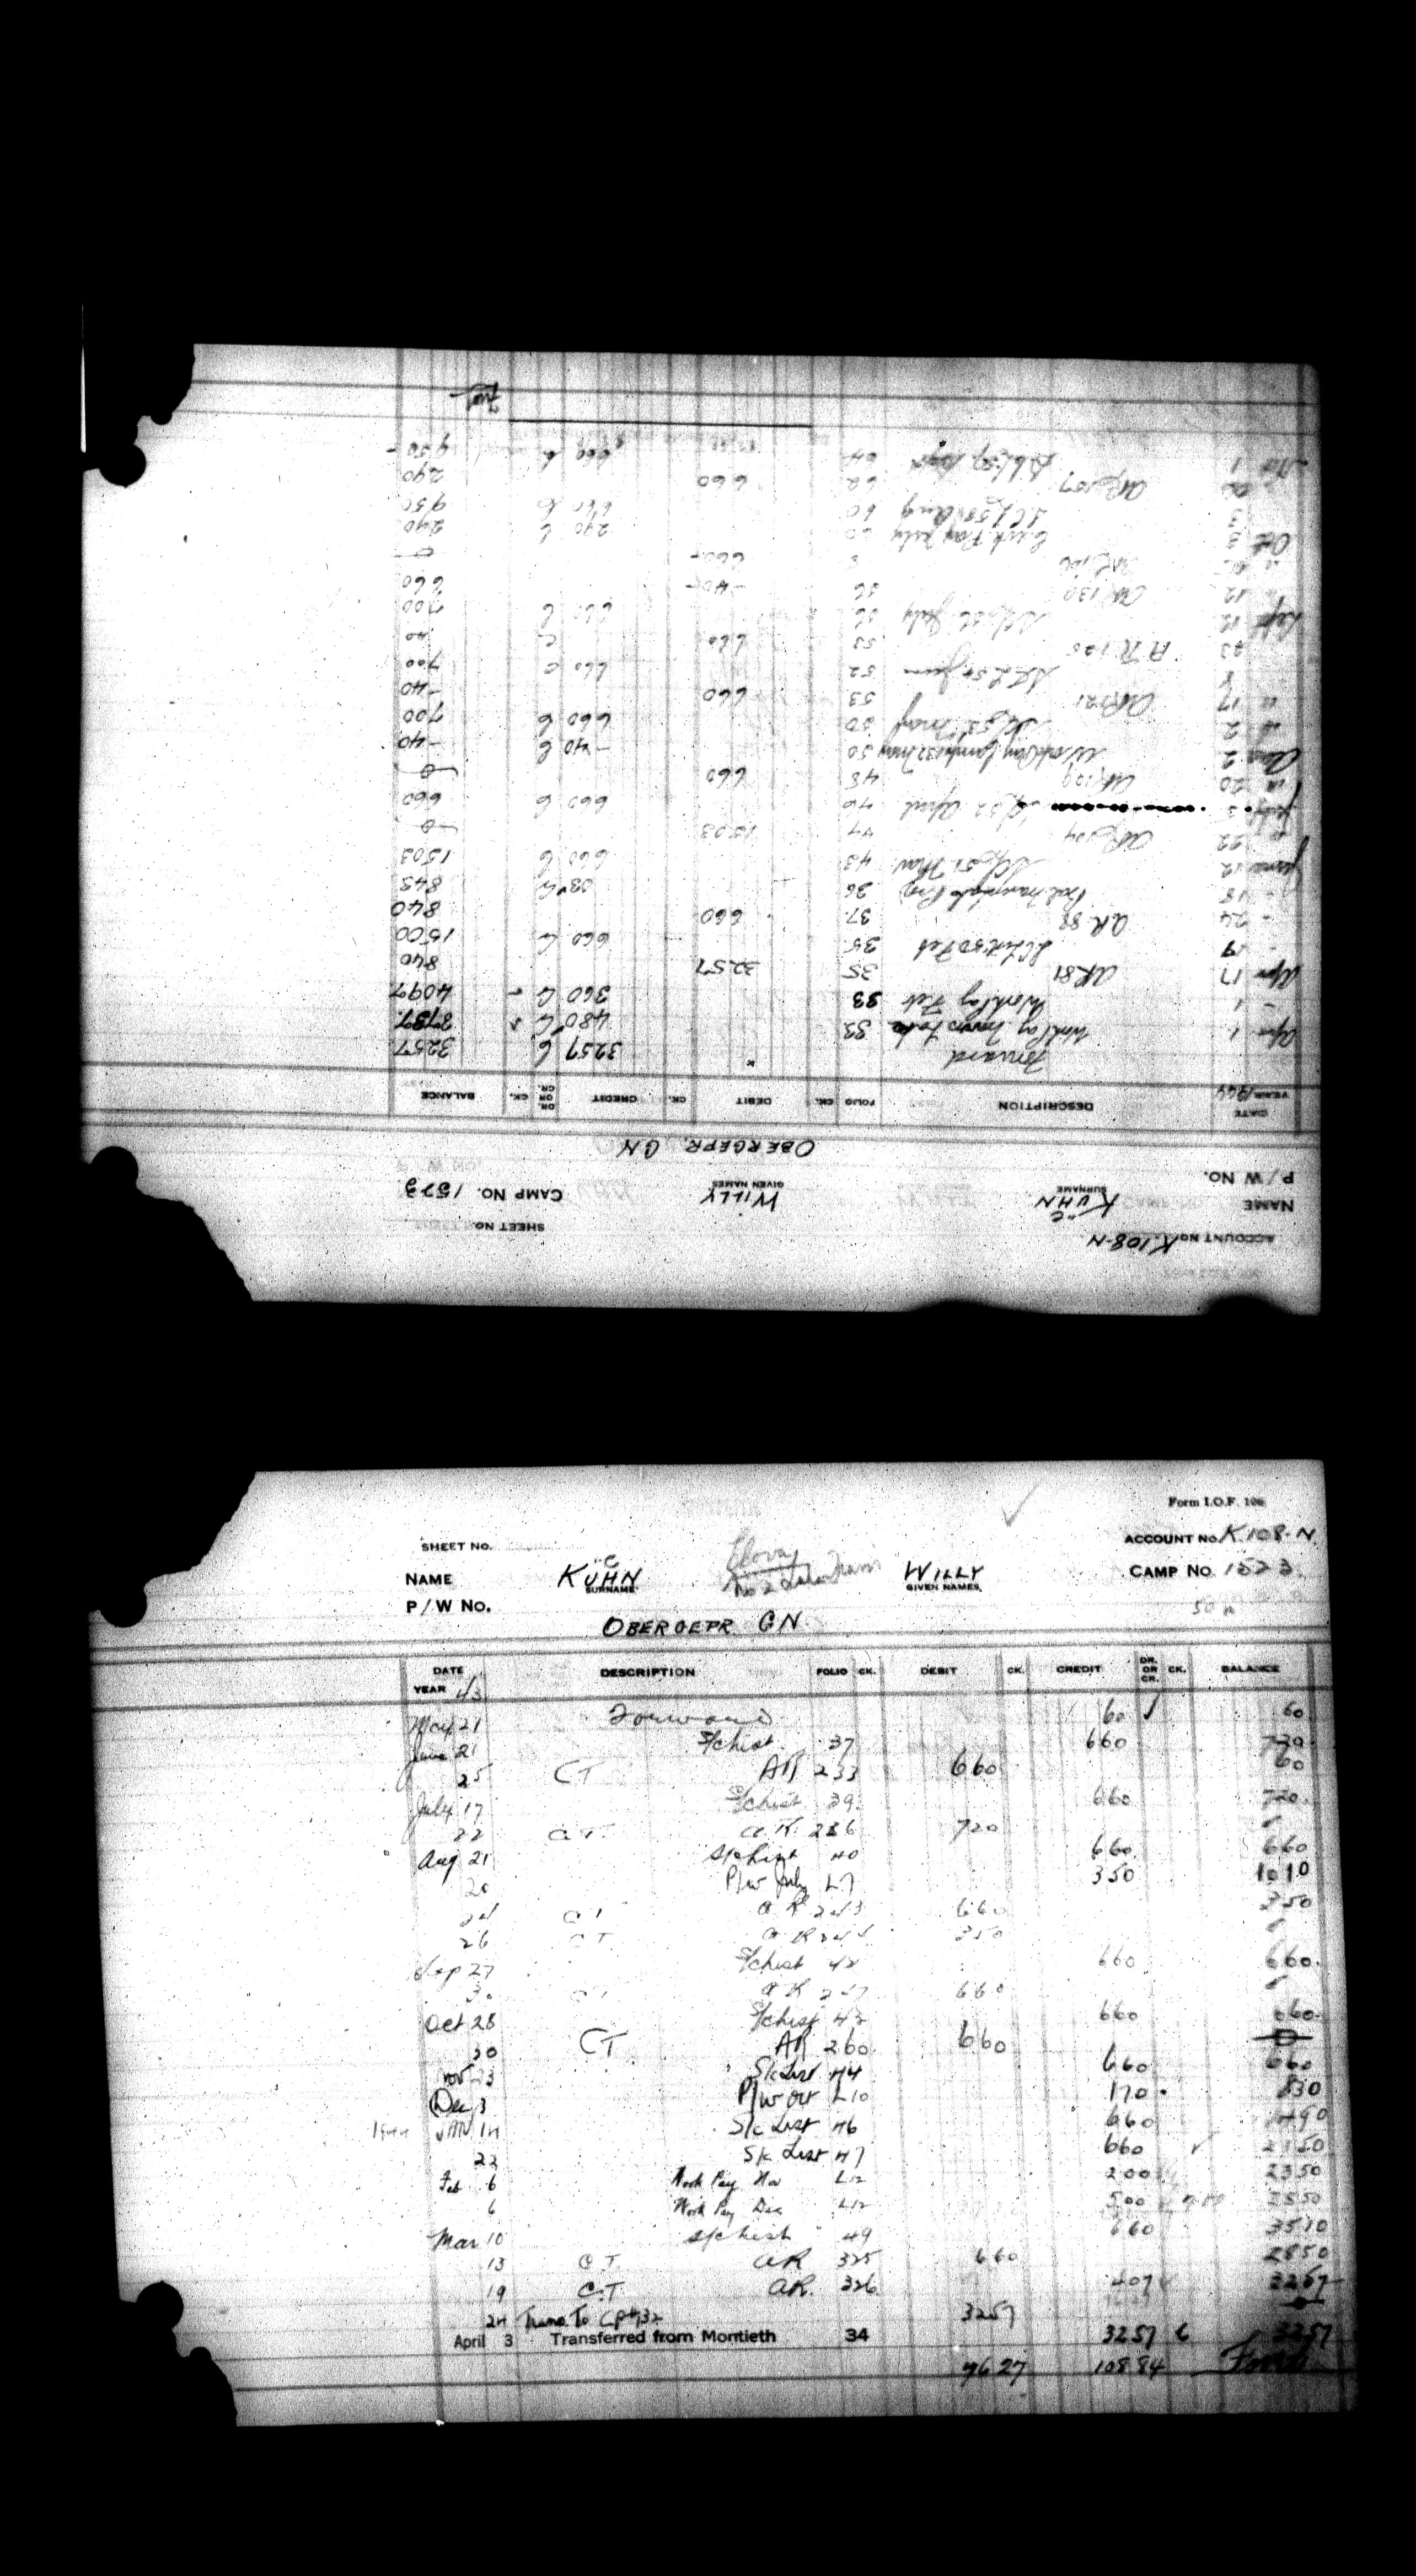 ACCOUNT NO. K.108-N
SHEET NO.
NAME KÜHN SURNAME WILLY GIVEN NAMES CAMP NO. 1523
P/W NO.
OBERGEPR. GN
DATE YEAR 1944 DESCRIPTION FOLIO CK. DEBIT CK. CREDIT DR. OR CR. CK. BALANCE
Forward 3257 C 3257
Apr 1 33 480 C 3737
" 1 Work Pay Feb 33 360 C 4097
Apr 17 AR 81 35 3257 840
" 19 50 Feb 35 660 C 1500
" 24 AR 88 37 660 840
36 03 C 843
June 12 43 660 C 1503
" 22 AR 104 44 1503 0
July 3 April 46 660 C 660
" 20 AR 109 48 660 0
Aug 2 May 50 40 C 40
" 2 May 50 660 C 700
" 17 AR 121 53 660 40
8 June 52 660 C 700
23 AR 125 53 660 40
Sept 12 July 56 660 C 700
12 AR 130 56 40 660
660 0
Oct 3 Work Pay July 60 290 C 290
3 Aug 60 660 C 950
AR 137 62 660 290
1 Sept 64 660 C 950
Fwd
Form I.O.F. 106
SHEET NO. ACCOUNT NO. K.108-N
NAME KÜHN SURNAME WILLY GIVEN NAMES CAMP NO. 1523
P/W NO.
OBERGEPR. GN.
DATE YEAR 43 DESCRIPTION FOLIO CK. DEBIT CK. CREDIT DR. OR CR. CK. BALANCE
May 21 Forward 60 60
June 21 S/c List 37 660 720
25 CT AR 233 660 60
July 17 S/c List 39 660 720
22 C.T. A.R. 236 720
Aug 21 S/c List 40 660 660
20 P/W July L7 350 1010
24 CT AR 243 660 350
26 CT AR 350
Sep 27 S/c List 42 660 660
30 CT AR 257 660
Oct 28 S/c List 43 660 660
30 CT AR 260 660 0
Nov 23 S/c List 44 660 660
Dec 3 P/W Oct L10 170 830
1944 JAN 14 S/c List 46 660 1490
22 S/c List 47 660 2150
Feb 6 Work Pay Nov L12 200 2350
6 Work Pay Dec L12 500 2850
Mar 10 S/c List 49 660 3510
13 C.T. AR 325 660 2850
19 C.T. AR. 326 407 3257
24 Trans To 3257 0
April 3 Transferred from Montieth 34 3257 C 3257
7627 10884 Forwd